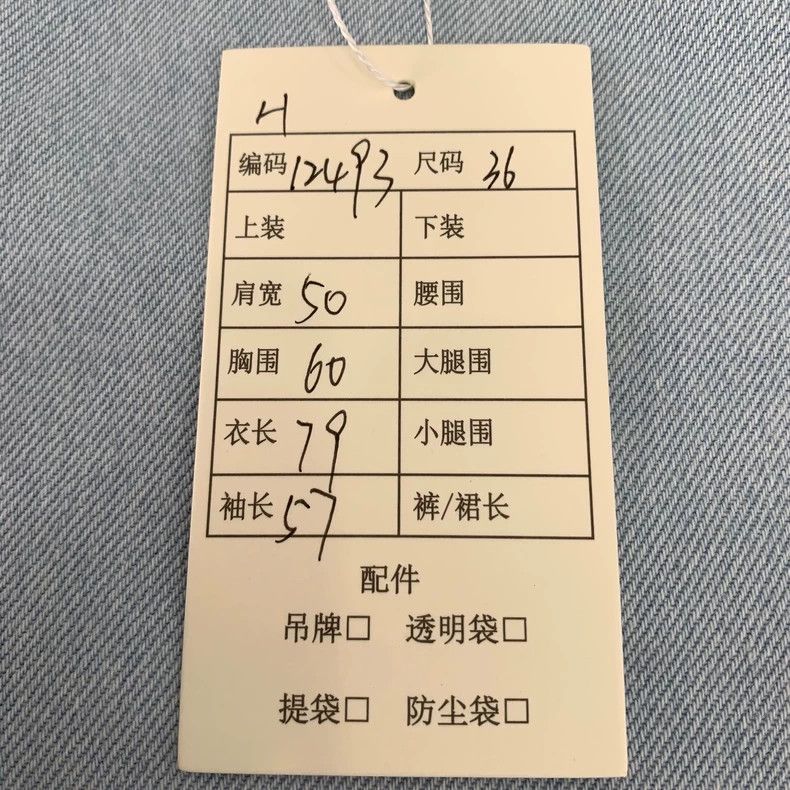 H
编码 12493 尺码 36
上装 下装
肩宽 50 腰围
胸围 60 大腿围
衣长 79 小腿围
袖长 57 裤/裙长
配件
吊牌□ 透明袋□
提袋□ 防尘袋□